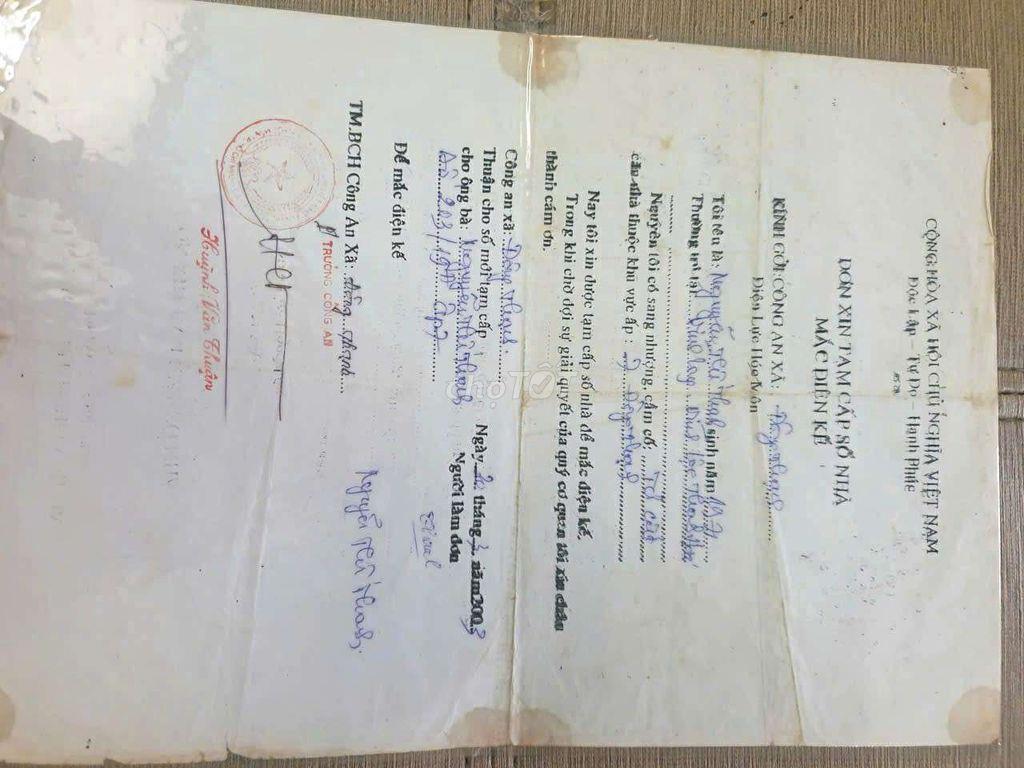 CỘNG HÒA XÃ HỘI CHỦ NGHĨA VIỆT NAM
Độc Lập – Tự Do – Hạnh Phúc
ĐƠN XIN TẠM CẤP SỐ NHÀ
MẮC ĐIỆN KẾ
KÍNH GỞI: CÔNG AN XÃ: Đông Thạnh
Điện Lực Hóc Môn
Tôi tên là: Nguyễn Thị Thanh sinh năm
Thường trú tại: Vĩnh Lộc
Nguyên tôi có sang nhượng, cầm cố,
căn nhà thuộc khu vực ấp: 7 Đông Thạnh
Nay tôi xin được tạm cấp số nhà để mắc điện kế.
Trong khi chờ đợi sự giải quyết của quý cơ quan tôi xin chân
thành cám ơn.
Công an xã: Đông Thạnh.
Thuận cho số mới tạm cấp
cho ông bà: Nguyễn Thị Thanh
ấp 7
Để mắc điện kế
Ngày 20 tháng 3 năm 2003
Người làm đơn
TM.BCH Công An Xã: Đông Thạnh
TRƯỞNG CÔNG AN
Huỳnh Văn Thuận
Nguyễn Thị Thanh
chợTỐT